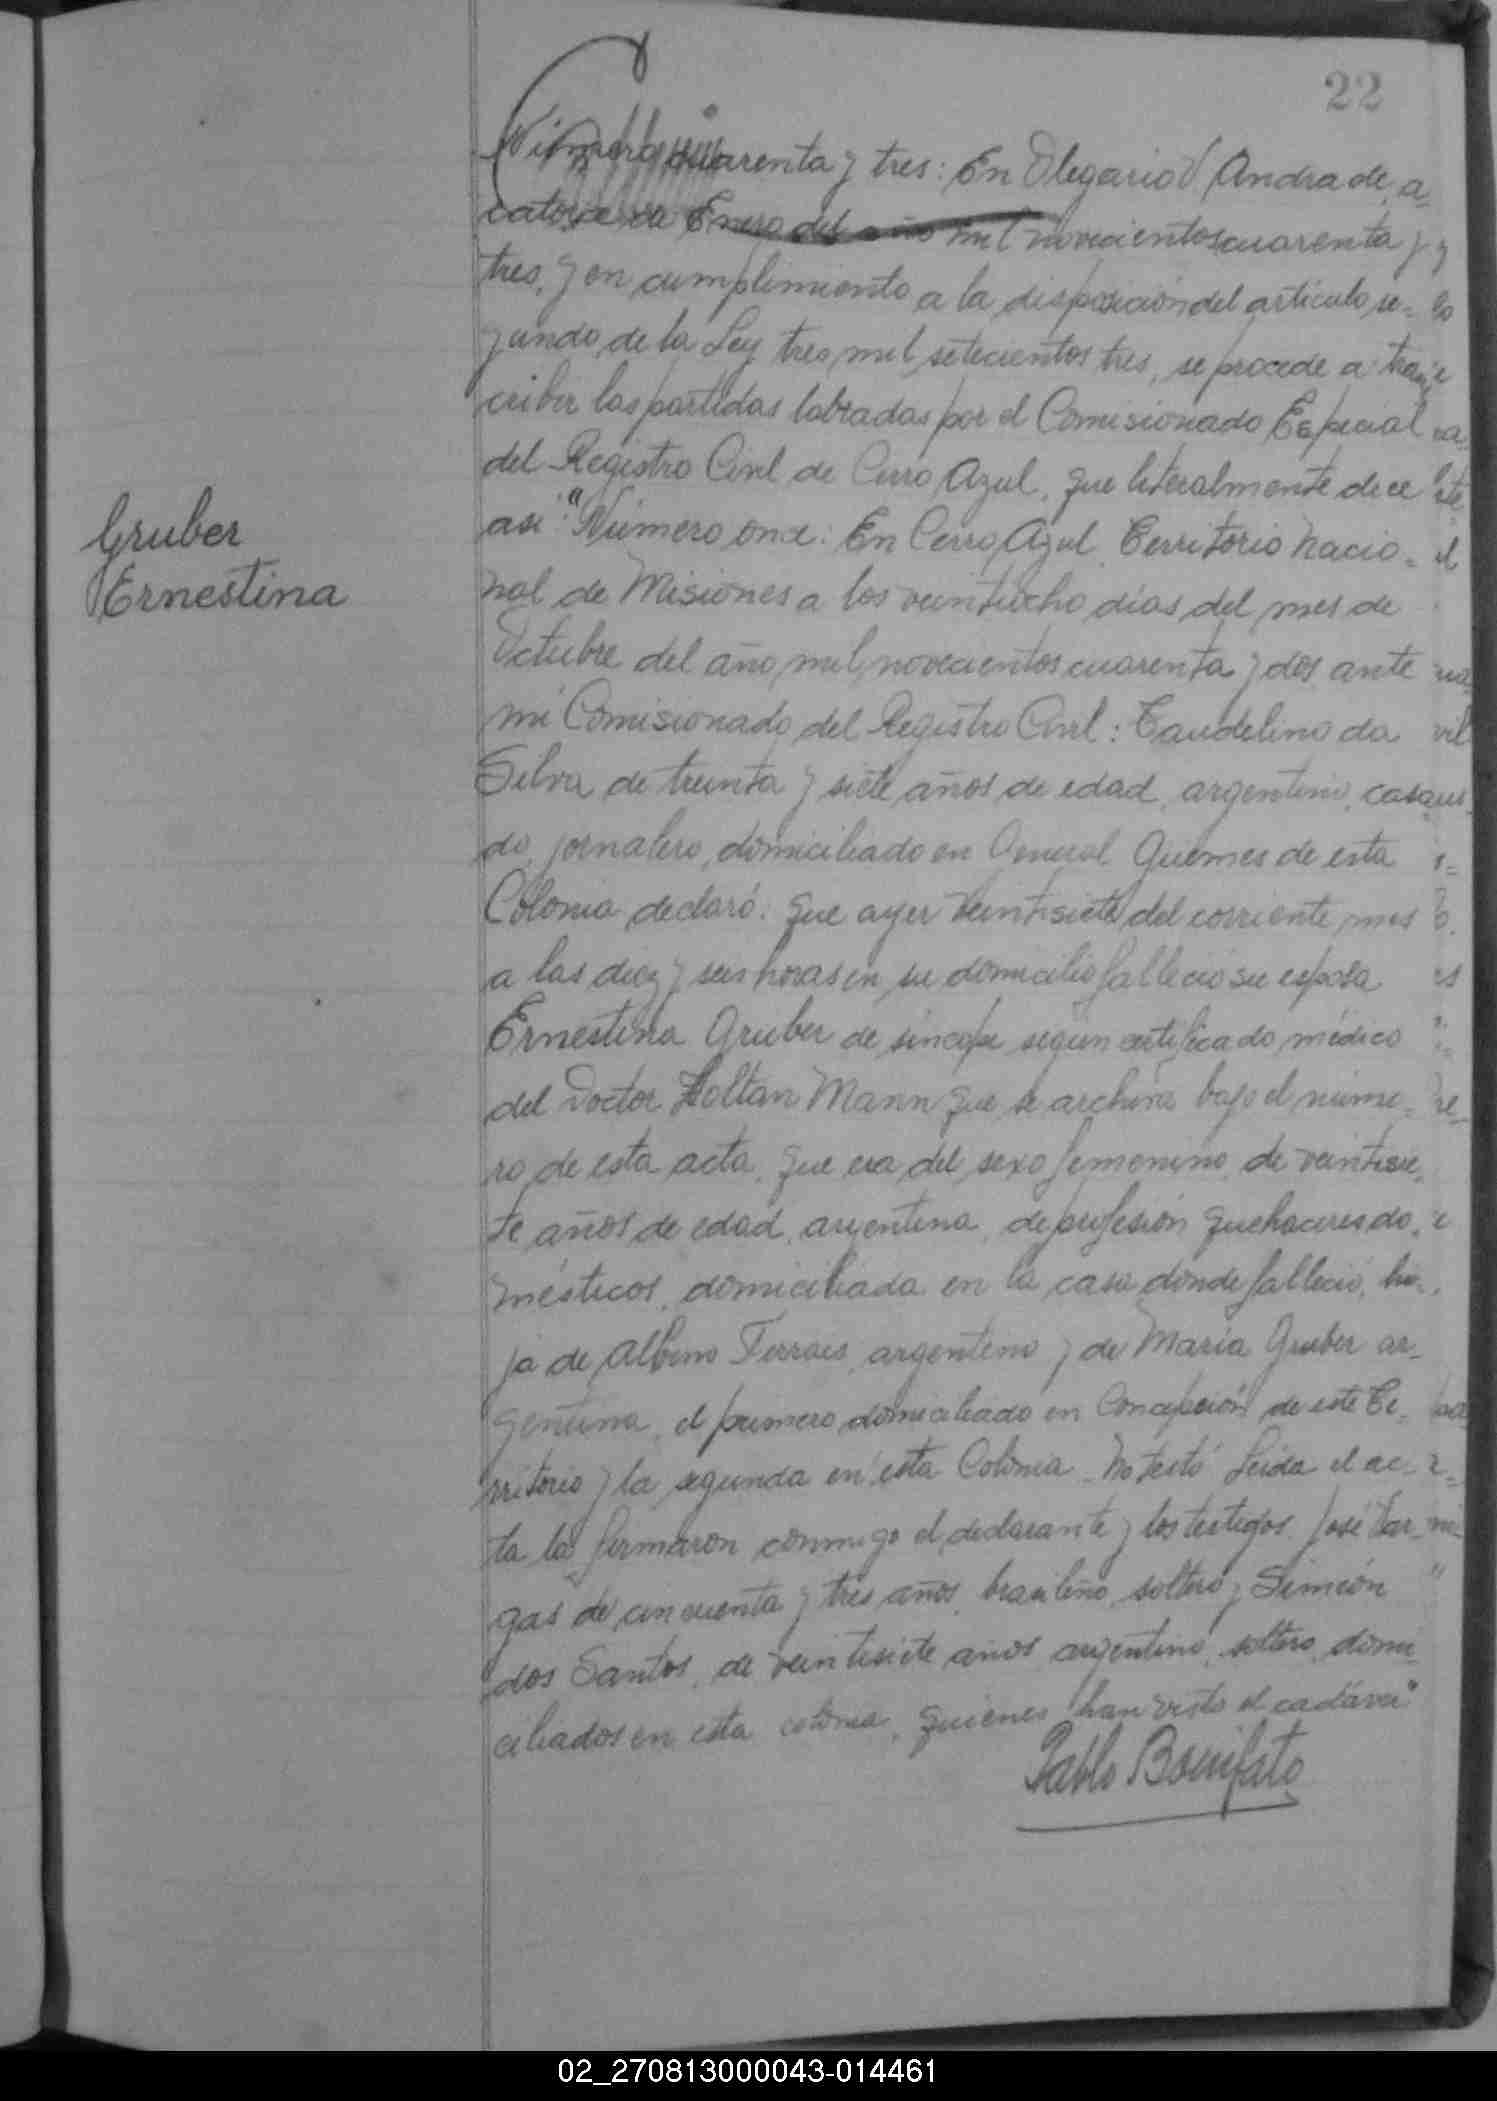 22
Número cuarenta y tres: En Olegario V Andrade, a
catorce de Enero del año mil novecientos cuarenta y
tres, y en cumplimiento a la disposición del articulo se=
gundo de la Ley tres mil setecientos tres, se procede a trans
cribir las partidas labradas por el Comisionado Especial
del Registro Civil de Cerro Azul, que literalmente dice
asi: "Número once: En Cerro Azul, Territorio Nacio=
Gruber
Ernestina
nal de Misiones a los veintiocho días del mes de
Octubre del año mil novecientos cuarenta y dos, ante
mi Comisionado del Registro Civil: Taudelino da
Silva de treinta y siete años de edad, argentino, casa
do, jornalero, domiciliado en General Guemes de esta
Colonia declaró: Que ayer veintisiete del corriente mes
a las diez y seis horas en su domicilio falleció su esposa
Ernestina Gruber de síncope según certificado médico
del Doctor Zoltan Mann que se archiva bajo el núme=
ro de esta acta, que era del sexo femenino, de veintisie
te años de edad, argentina, de profesión quehaceres do
mésticos, domiciliada en la casa donde falleció, hi
ja de Albino Ferraes, argentino y de Maria Gruber ar=
gentina, el primero domiciliado en Concepción de este Te=
rritorio y la segunda en esta Colonia. No testó Leida el ac=
ta la firmaron conmigo el declarante y los testigos. José Var=
gas de cincuenta y tres años, brasileño, soltero y Simeón
dos Santos, de veintisiete años argentino, soltero, domi
ciliados en esta colonia, quienes han visto el cadáver"
Pablo Bonifato
02_270813000043-014461